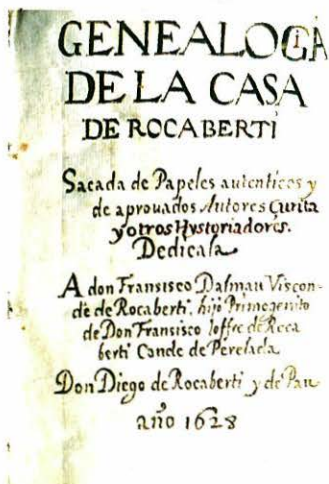 GENEALOGIA
DE LA CASA
DE ROCABERTÍ
Sacada de Papeles autenticos y
de aprouados Autores Çurita
y otros Hystoriadores.
Dedicala
A don Fransisco Dalmau Viscon-
de de Rocaberti, hijo Primogenito
de Don Fransisco Ioffre de Roca
berti Conde de Perelada
Don Diego de Rocaberti y de Pau
año 1628